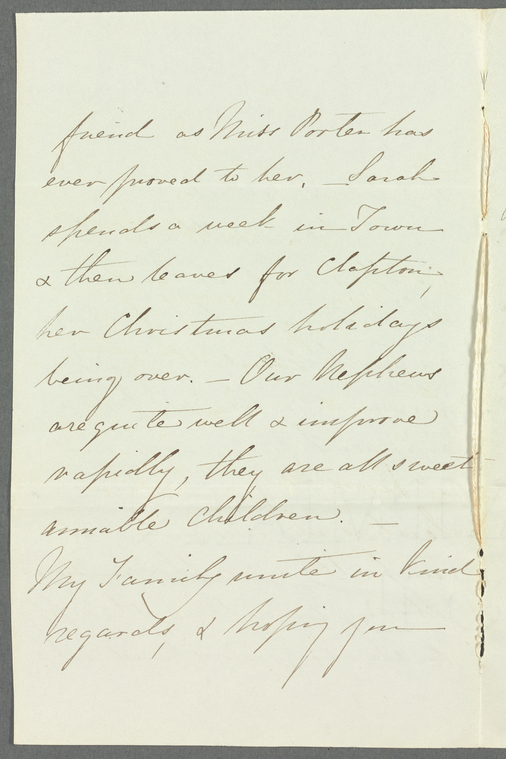 friend as Miss Porter has
ever proved to her. – Sarah
spends a week in Town
& then leaves for Clapton,
her Christmas holidays
being over. – Our Nephews
are quite well & improve
rapidly, they are all sweet
amiable children. –
My Family unite in kind
regards, & hoping you